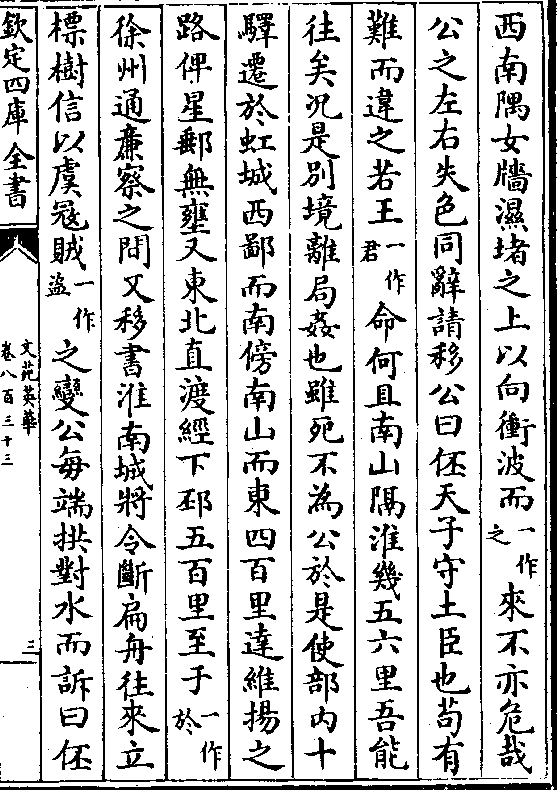 西南隅女牆濕堵之上以向衝波而一作之來不亦危哉
公之左右失色同辭請移公曰伾天子守土臣也茍有
難而違之若王一作君命何且南山隔淮幾五六里吾能
往矣況是別境離局姦也雖死不為公於是使部内十
驛遷於虹城西鄙而南傍南山而東四百里達維揚之
路俾星郵無壅又東北直渡經下邳五百里至于一作於
徐州通亷察之問又移書淮南城將令斷扁舟往來立
標樹信以虞冦賊一作盗之變公每端拱對水而訴曰伾
欽定四庫全書
文苑英華
卷八百三十三
三